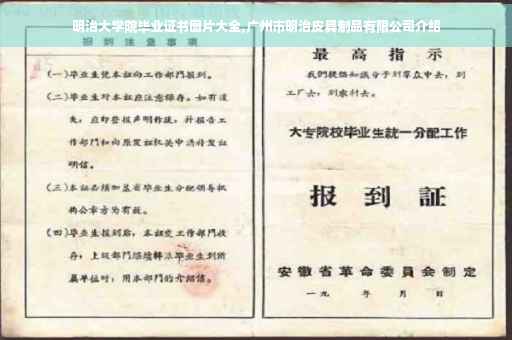 明治大学院毕业证书图片大全,广州市明治皮具制品有限公司介绍
报到注意事项
(一)毕业生凭本证向工作部門报到。
(二)毕业生对本証应注意保存。如有遗
失,应即登报声明作废,并报告工
作部門和向原发証机关申請补发証
明信。
(三)本証必須加盖省毕业生分配領导机
构公章方为有效。
(四)毕业生报到后,本証交工作部門收
存;上級部門
单位时,用本部門的介紹信。
最高指示
我們提倡知識分子到羣众中去,到
工厂去,到农村去。
大专院校毕业生統一分配工作
报到証
安徽省革命委員会制定
一九 年 月 日